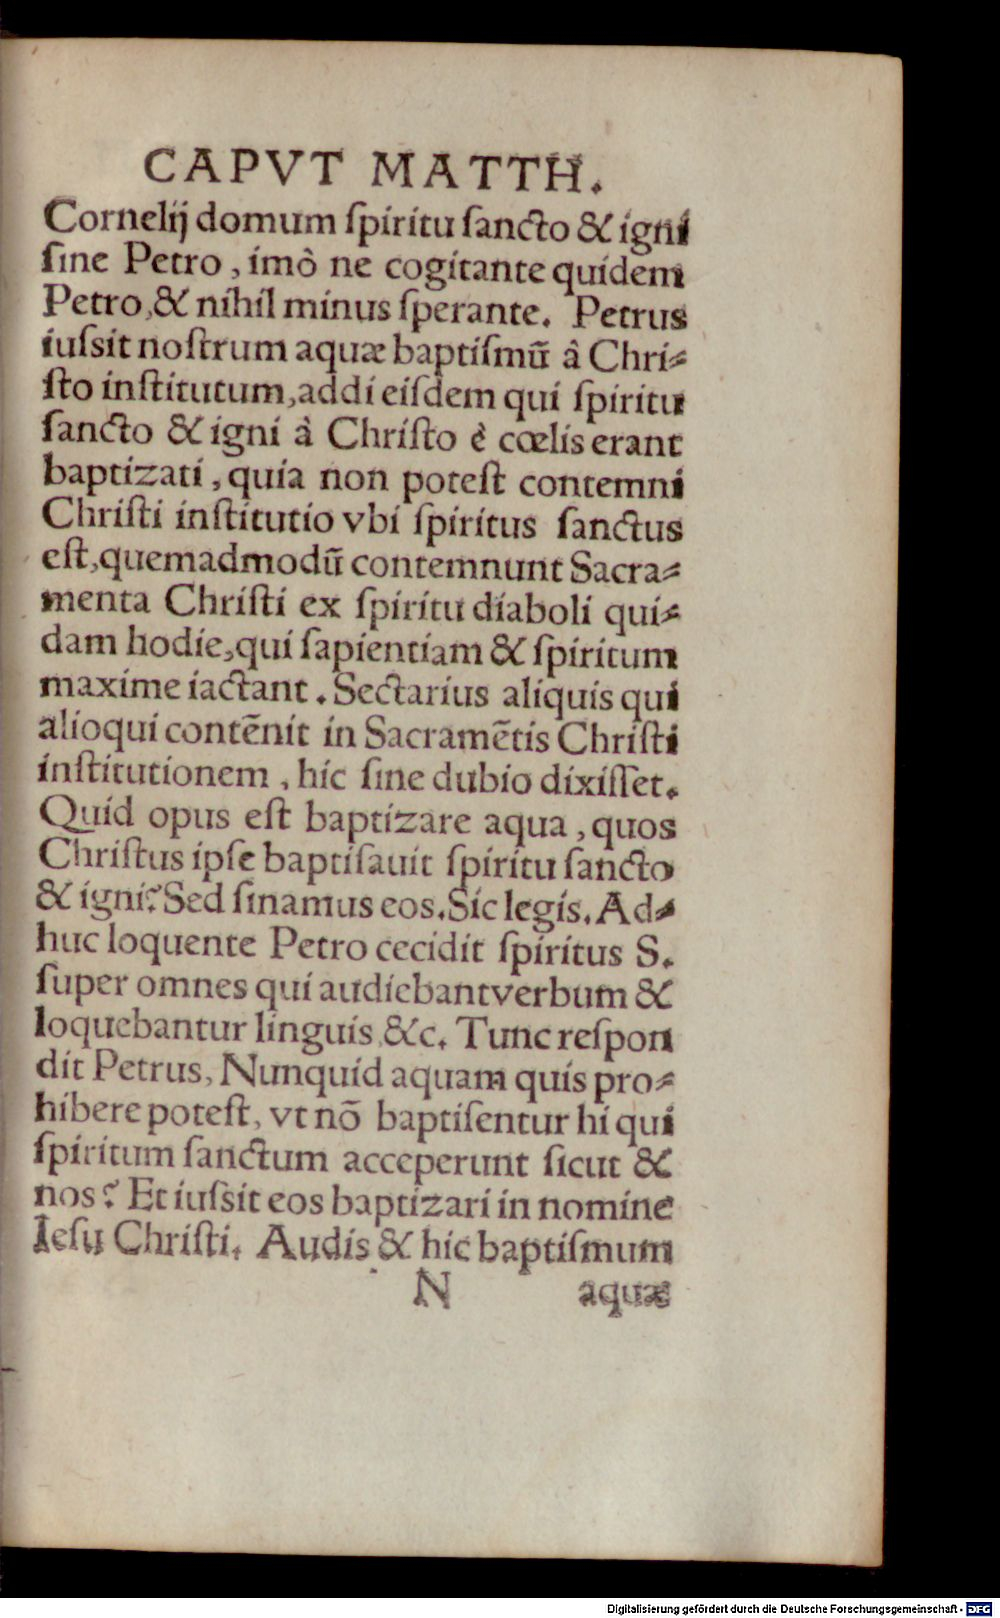 CAPVT MATTH.
Cornelij domum ſpiritu ſancto & igni
ſine Petro, imò ne cogitante quidem
Petro, & nihil minus ſperante. Petrus
iuſsit noſtrum aquæ baptiſmū â Chri⸗
ſto inſtitutum, addi eiſdem qui ſpiritu
ſancto & igni à Chriſto è cœlis erant
baptizati, quia non poteſt contemni
Chriſti inſtitutio vbi ſpiritus ſanctus
eſt, quemadmodū contemnunt Sacra⸗
menta Chriſti ex ſpiritu diaboli qui⸗
dam hodie, qui ſapientiam & ſpiritum
maxime iactant. Sectarius aliquis qui
alioqui contēnit in Sacramētis Chriſti
inſtitutionem, hic ſine dubio dixiſſet.
Quid opus eſt baptizare aqua, quos
Chriſtus ipſe baptiſauit ſpiritu ſancto
& igni? Sed ſinamus eos. Sic legis. Ad⸗
huc loquente Petro cecidit ſpiritus S.
ſuper omnes qui audiebant verbum &
loquebantur linguis, &c. Tunc reſpon
dit Petrus, Nunquid aquam quis pro⸗
hibere poteſt, vt nō baptiſentur hi qui
ſpiritum ſanctum acceperunt ſicut &
nos? Et iuſsit eos baptizari in nomine
Ieſu Chriſti. Audis & hic baptiſmum
N aquæ
Digitalisierung gefördert durch die Deutsche Forschungsgemeinschaft - DFG